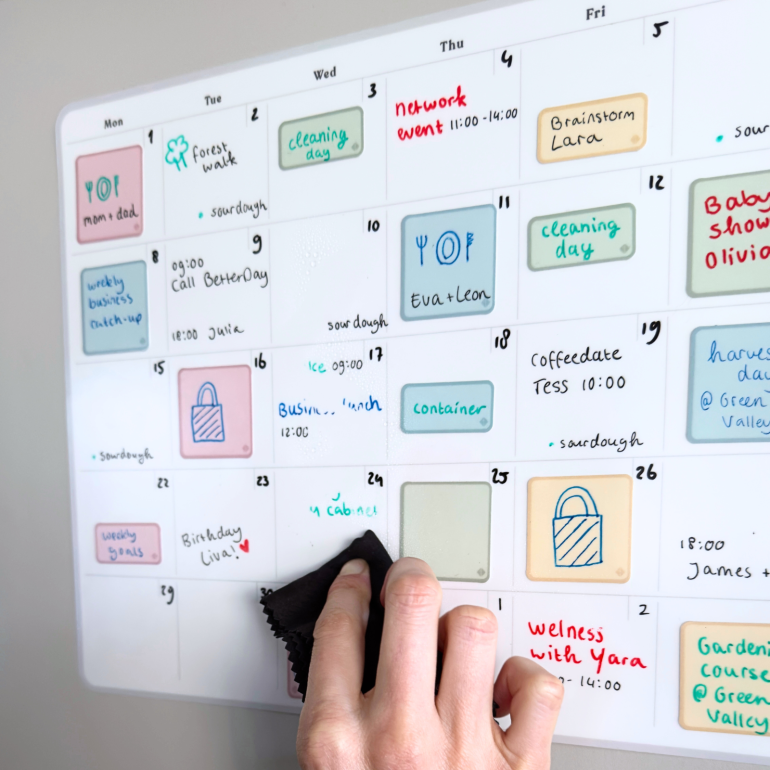 Mon
Tue
Wed
Thu
Fri
1
mom + dad
2
forest
walk
sourdough
3
cleaning
day
4
network
event 11:00-14:00
5
Brainstorm
Lara
8
weekly
business
catch-up
9
09:00
Call BetterDay
18:00 Julia
10
sourdough
11
Eva + Leon
12
cleaning
day
Baby
15
sourdough
16
17
Ice 09:00
12:00
18
container
19
Coffeedate
Tess 10:00
sourdough
@ Green
Valley
22
weekly
goals
23
Birthday
Liva!
24
25
26
18:00
James +
29
30
1
2
welness
with Yara
14:00
Course
@ Green
Valley